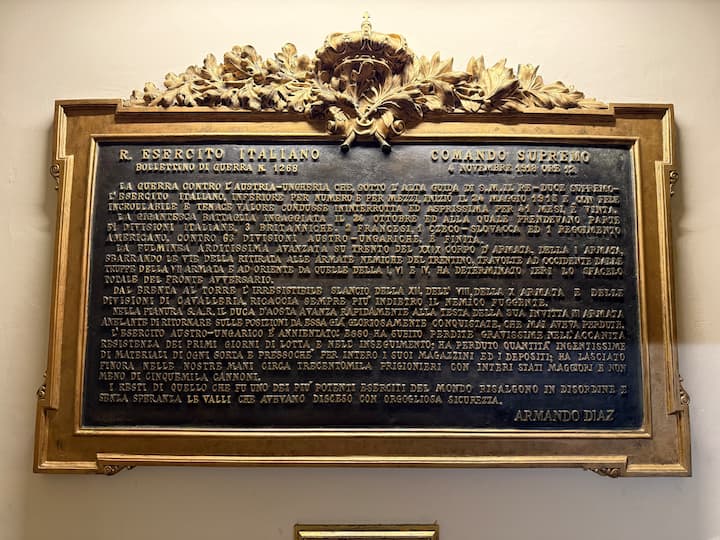 R. ESERCITO ITALIANO COMANDO SUPREMO
BOLLETTINO DI GUERRA N. 1268 4 NOVEMBRE 1918 ORE 12
LA GUERRA CONTRO L'AUSTRIA-UNGHERIA CHE, SOTTO L'ALTA GUIDA DI S.M. IL RE-DUCE SUPREMO-
L'ESERCITO ITALIANO, INFERIORE PER NUMERO E PER MEZZI, INIZIÒ IL 24 MAGGIO 1915 E CON FEDE
INCROLLABILE E TENACE VALORE CONDUSSE ININTERROTTA ED ASPRISSIMA PER 41 MESI, È VINTA.
LA GIGANTESCA BATTAGLIA INGAGGIATA IL 24 OTTOBRE ED ALLA QUALE PRENDEVANO PARTE
51 DIVISIONI ITALIANE, 3 BRITANNICHE, FRANCESI, 1 CZECO-SLOVACCA ED 1 REGGIMENTO
AMERICANO, CONTRO 63 DIVISIONI AUSTRO-UNGARICHE, È FINITA.
LA FULMINEA ARDITISSIMA AVANZATA SU TRENTO DEL XXIX CORPO D'ARMATA DELLA I ARMATA,
SBARRANDO LE VIE DELLA RITIRATA ALLE ARMATE NEMICHE DEL TRENTINO, TRAVOLTE AD OCCIDENTE DALLE
TRUPPE DELLA VII ARMATA E AD ORIENTE DA QUELLE DELLA I, VI E IV, HA DETERMINATO IERI LO SFACELO
TOTALE DEL FRONTE AVVERSARIO.
DAL BRENTA AL TORRE L'IRRESISTIBILE SLANCIO DELLA XII, DELL' VIII, DELLA X ARMATA E DELLE
DIVISIONI DI CAVALLERIA, RICACCIA SEMPRE PIÙ INDIETRO IL NEMICO FUGGENTE.
NELLA PIANURA S.A.R. IL DUCA D'AOSTA AVANZA RAPIDAMENTE ALLA TESTA DELLA SUA INVITTA III ARMATA
ANELANTE DI RITORNARE SULLE POSIZIONI DA ESSA GIÀ GLORIOSAMENTE CONQUISTATE, CHE MAI AVEVA PERDUTE.
L'ESERCITO AUSTRO-UNGARICO È ANNIENTATO: ESSO HA SUBITO PERDITE GRAVISSIME NELL'ACCANITA
RESISTENZA DEI PRIMI GIORNI DI LOTTA E NELL' INSEGUIMENTO; HA PERDUTO QUANTITÀ INGENTISSIME
DI MATERIALI DI OGNI SORTA E PRESSOCHÈ PER INTERO I SUOI MAGAZZINI ED I DEPOSITI; HA LASCIATO
FINORA NELLE NOSTRE MANI CIRCA TRECENTOMILA PRIGIONIERI CON INTERI STATI MAGGIORI E NON
MENO DI CINQUEMILA CANNONI.
I RESTI DI QUELLO CHE FU UNO DEI PIÙ POTENTI ESERCITI DEL MONDO RISALGONO IN DISORDINE E
SENZA SPERANZA LE VALLI CHE AVEVANO DISCESO CON ORGOGLIOSA SICUREZZA.
ARMANDO DIAZ